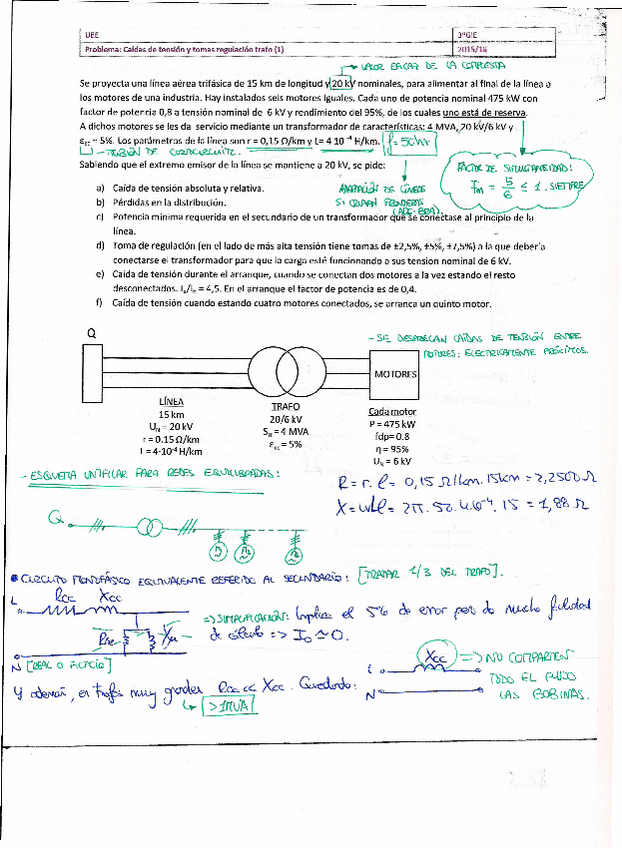 UEE
3ºGIE
Problema: Caídas de tensión y tomas regulación trafo (1)
2015/16
VALOR EFICAZ DE LA COMPUESTA
Se proyecta una línea aérea trifásica de 15 km de longitud y 20 kV nominales, para alimentar al final de la línea a
los motores de una industria. Hay instalados seis motores iguales. Cada uno de potencia nominal 475 kW con
factor de potencia 0,8 a tensión nominal de 6 kV y rendimiento del 95%, de los cuales uno está de reserva.
A dichos motores se les da servicio mediante un transformador de características: 4 MVA, 20 kV/6 kV y
εcc = 5%. Los parámetros de la línea son r = 0,15 Ω/km y L= 4·10⁻⁴ H/km. f = 50Hz
TENSIÓN DE CORTOCIRCUITO.
Sabiendo que el extremo emisor de la línea se mantiene a 20 kV, se pide:
FACTOR DE SIMULTANEIDAD:
Fm = 5/6 ≤ 1. SIEMPRE
a) Caída de tensión absoluta y relativa.
b) Pérdidas en la distribución.
c) Potencia mínima requerida en el secundario de un transformador que se conectase al principio de la
línea.
d) Toma de regulación (en el lado de más alta tensión tiene tomas de ±2,5%, ±5%, ±7,5%) a la que debería
conectarse el transformador para que la carga esté funcionando a su tensión nominal de 6 kV.
e) Caída de tensión durante el arranque, cuando se conectan dos motores a la vez estando el resto
desconectados. Ia/In = 4,5. En el arranque el factor de potencia es de 0,4.
f) Caída de tensión cuando estando cuatro motores conectados, se arranca un quinto motor.
Q
- SE DESPRECIAN CAÍDAS DE TENSIÓN ENTRE
MOTORES: ELECTRICAMENTE PRÓXIMOS.
MOTORES
LÍNEA
15 km
UN = 20 kV
r = 0.15 Ω/km
L = 4·10⁻⁴ H/km
TRAFO
20/6 kV
SN = 4 MVA
εcc = 5%
Cada motor
P = 475 kW
fdp= 0.8
η = 95%
UN = 6 kV
- ESQUEMA UNIFILAR PARA REDES EQUILIBRADAS:
R = r.l = 0,15 Ω/km. 15km = 2,2500 Ω
X = ωLl = 2π. 50. 4.10⁻⁴. 15 = 1,88 Ω
Q
CIRCUITO MONOFÁSICO EQUIVALENTE REFERIDO AL SECUNDARIO: [TRATAR 1/3 DEL TRAFO].
L Rcc Xcc
=> SIMPLIFICACIÓN: Implica el 5% de error pero da mucha facilidad
RFe Xμ de cálculo => I₀ ≃ 0.
N [REAL O FICTICIO]
L Xcc => NO COMPARTEN
TODO EL FLUJO
N LAS BOBINAS.
Y además, en trafos muy grandes Rcc << Xcc. Quedando:
> 1MVA